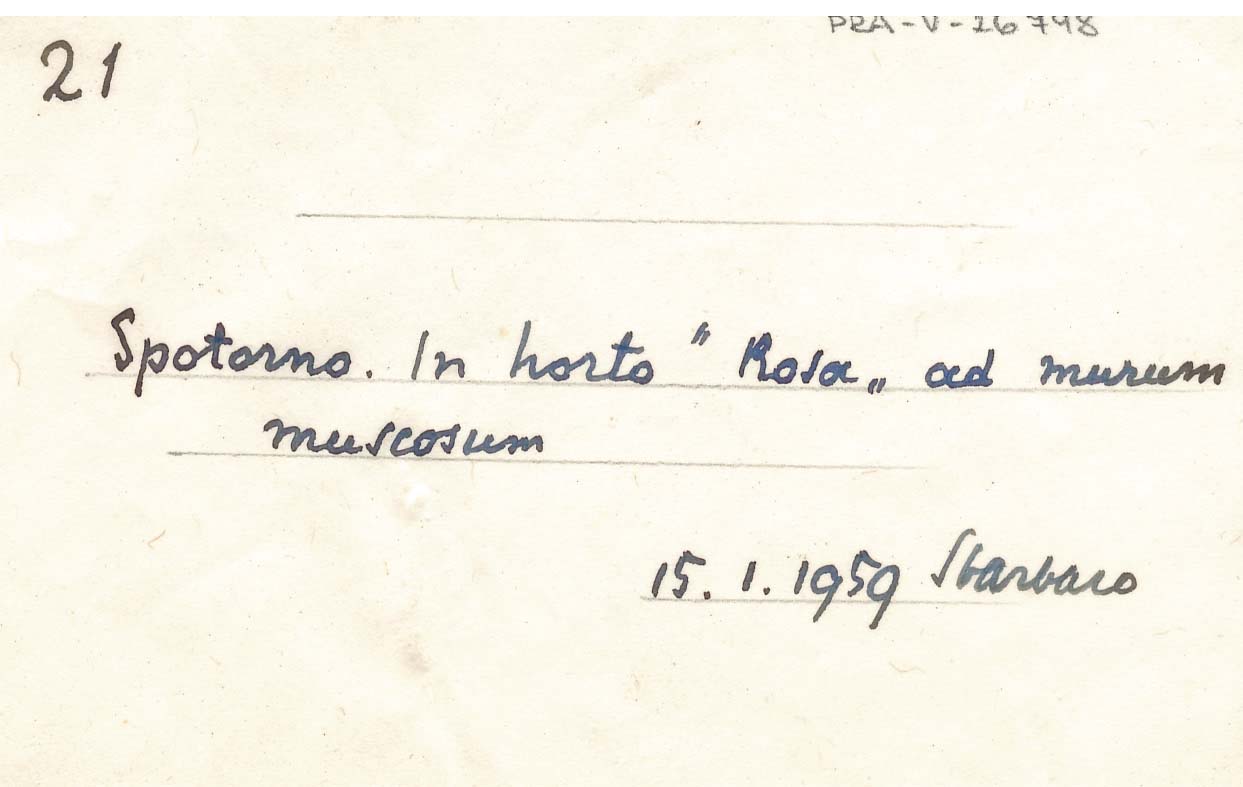 PRA-V-16798
21
Spotorno. In horto " Rosa „ ad murum
muscosum
15. 1. 1959 Sbarbaro